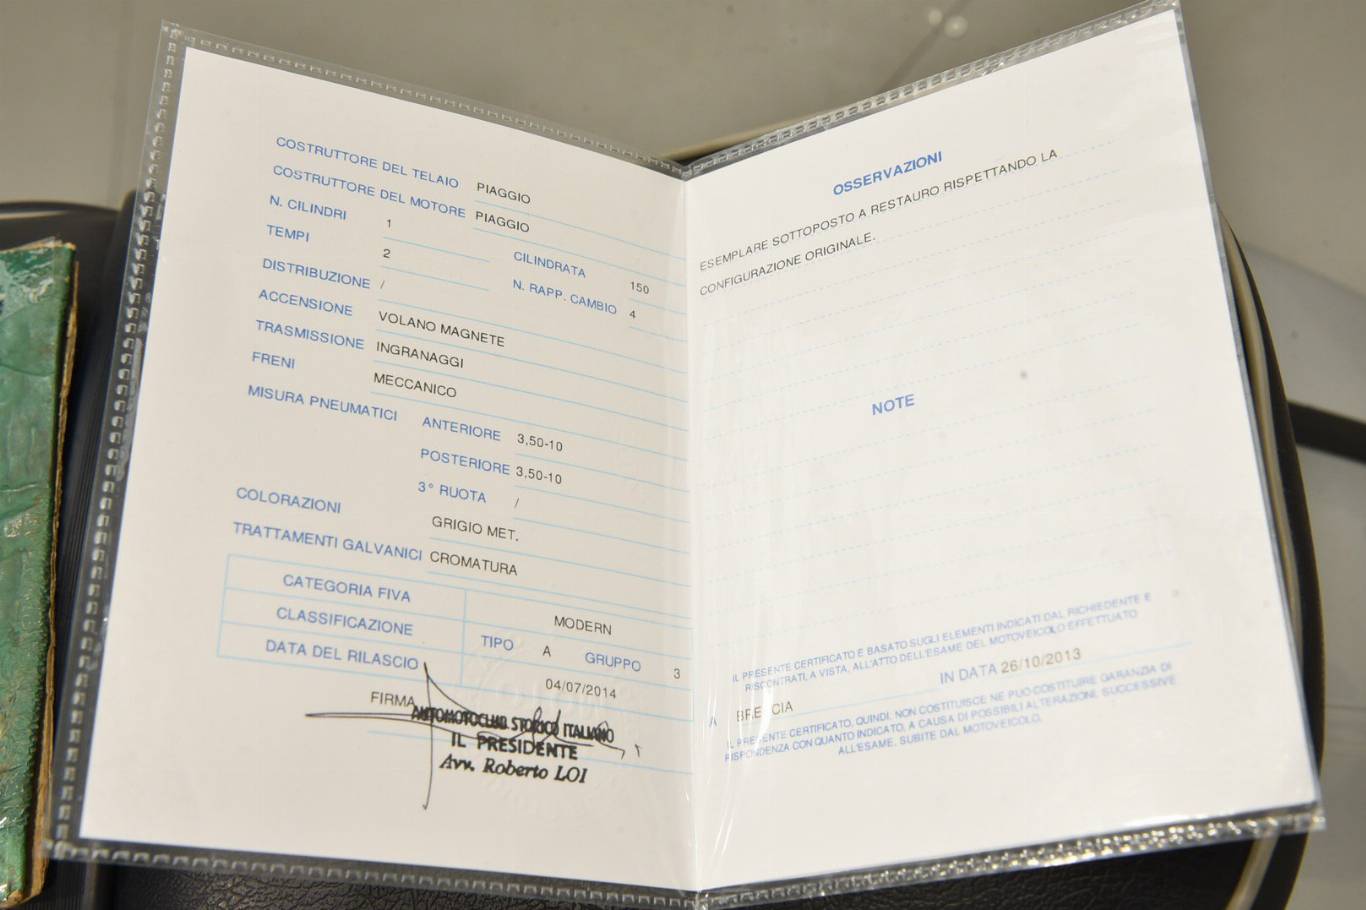 COSTRUTTORE DEL TELAIO PIAGGIO
COSTRUTTORE DEL MOTORE PIAGGIO
N. CILINDRI 1 CILINDRATA 150
TEMPI 2 N. RAPP. CAMBIO 4
DISTRIBUZIONE /
ACCENSIONE VOLANO MAGNETE
TRASMISSIONE INGRANAGGI
FRENI MECCANICO
MISURA PNEUMATICI ANTERIORE 3,50-10
POSTERIORE 3,50-10
3° RUOTA /
COLORAZIONI GRIGIO MET.
TRATTAMENTI GALVANICI CROMATURA
CATEGORIA FIVA MODERN
CLASSIFICAZIONE TIPO A GRUPPO 3
DATA DEL RILASCIO 04/07/2014
FIRMA
AUTOMOTOCLUB STORICO ITALIANO
IL PRESIDENTE
Avv. Roberto LOI
OSSERVAZIONI
ESEMPLARE SOTTOPOSTO A RESTAURO RISPETTANDO LA
CONFIGURAZIONE ORIGINALE.
NOTE
IL PRESENTE CERTIFICATO E BASATO SUGLI ELEMENTI INDICATI DAL RICHIEDENTE E
RISCONTRATI, A VISTA, ALL'ATTO DELL'ESAME DEL MOTOVEICOLO EFFETTUATO
A BRESCIA IN DATA 26/10/2013
IL PRESENTE CERTIFICATO, QUINDI, NON COSTITUISCE NE PUO COSTITUIRE GARANZIA DI
RISPONDENZA CON QUANTO INDICATO, A CAUSA DI POSSIBILI ALTERAZIONI, SUCCESSIVE
ALL'ESAME, SUBITE DAL MOTOVEICOLO.